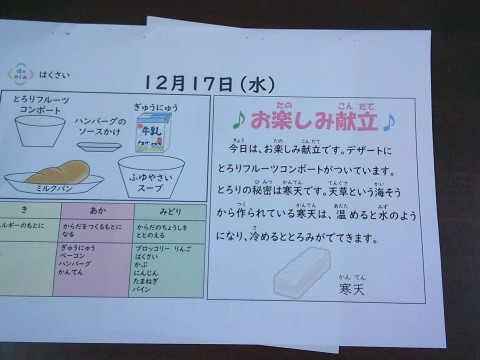 はくさい
12月17日(水)
とろりフルーツ
コンポート
ハンバーグの
ソースかけ
ぎゅうにゅう
牛乳
ミルクパン
ふゆやさい
スープ
き
あか
みどり
ネルギーのもとに
からだをつくるもとに
なる
からだのちょうしを
ととのえる
ぎゅうにゅう
ベーコン
ハンバーグ
かんてん
ブロッコリー りんご
はくさい
かぶ
にんじん
たまねぎ
パイン
♪お楽しみ献立♪
今日は、お楽しみ献立です。デザートに
とろりフルーツコンポートがついています。
とろりの秘密は寒天です。天草という海そう
から作られている寒天は、温めると水のよう
になり、冷めるととろみがでてきます。
かん てん
寒天